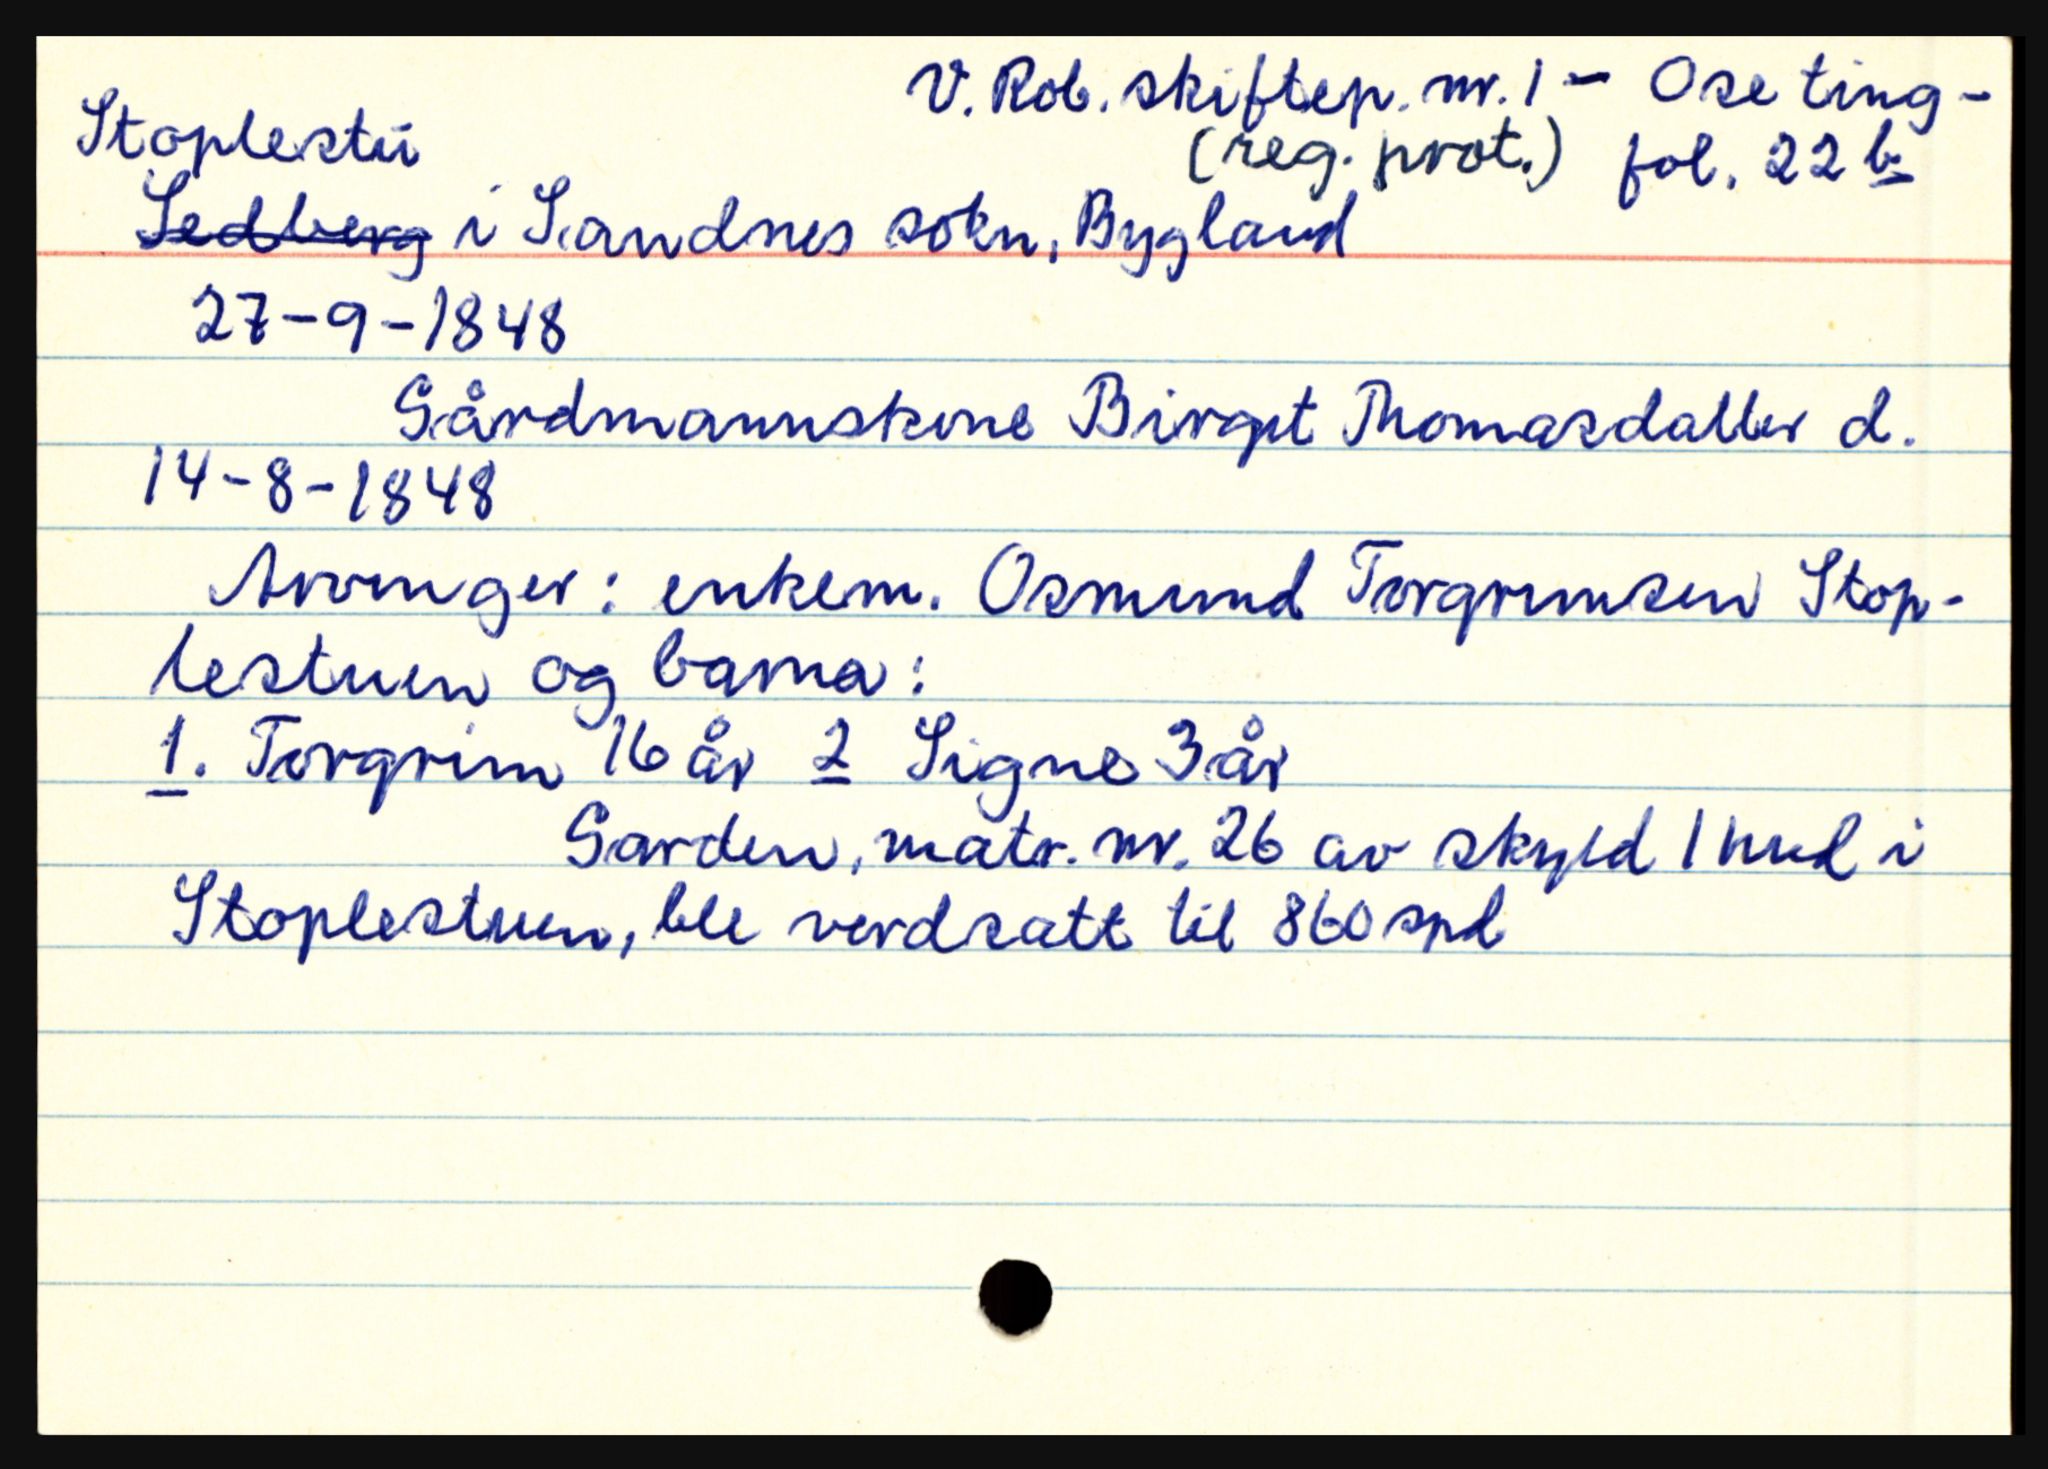 V. Rob. skiftep. nr. 1 - Ose ting-
Stoplestū (reg. prot.) fol. 22 b
Sedberg i Sandnes sokn, Bygland
27-9-1848
Gårdmannskone Birgit Thomasdatter d.
14-8-1848
Arvinger: enkem. Osmund Torgrimsen Stop-
lestuen og barna:
1. Torgrim 16 år 2 Signe 3 år
Garden, matr. nr. 26 av skyld 1 hud i
Stoplestuen, ble verdsatt til 860 spd